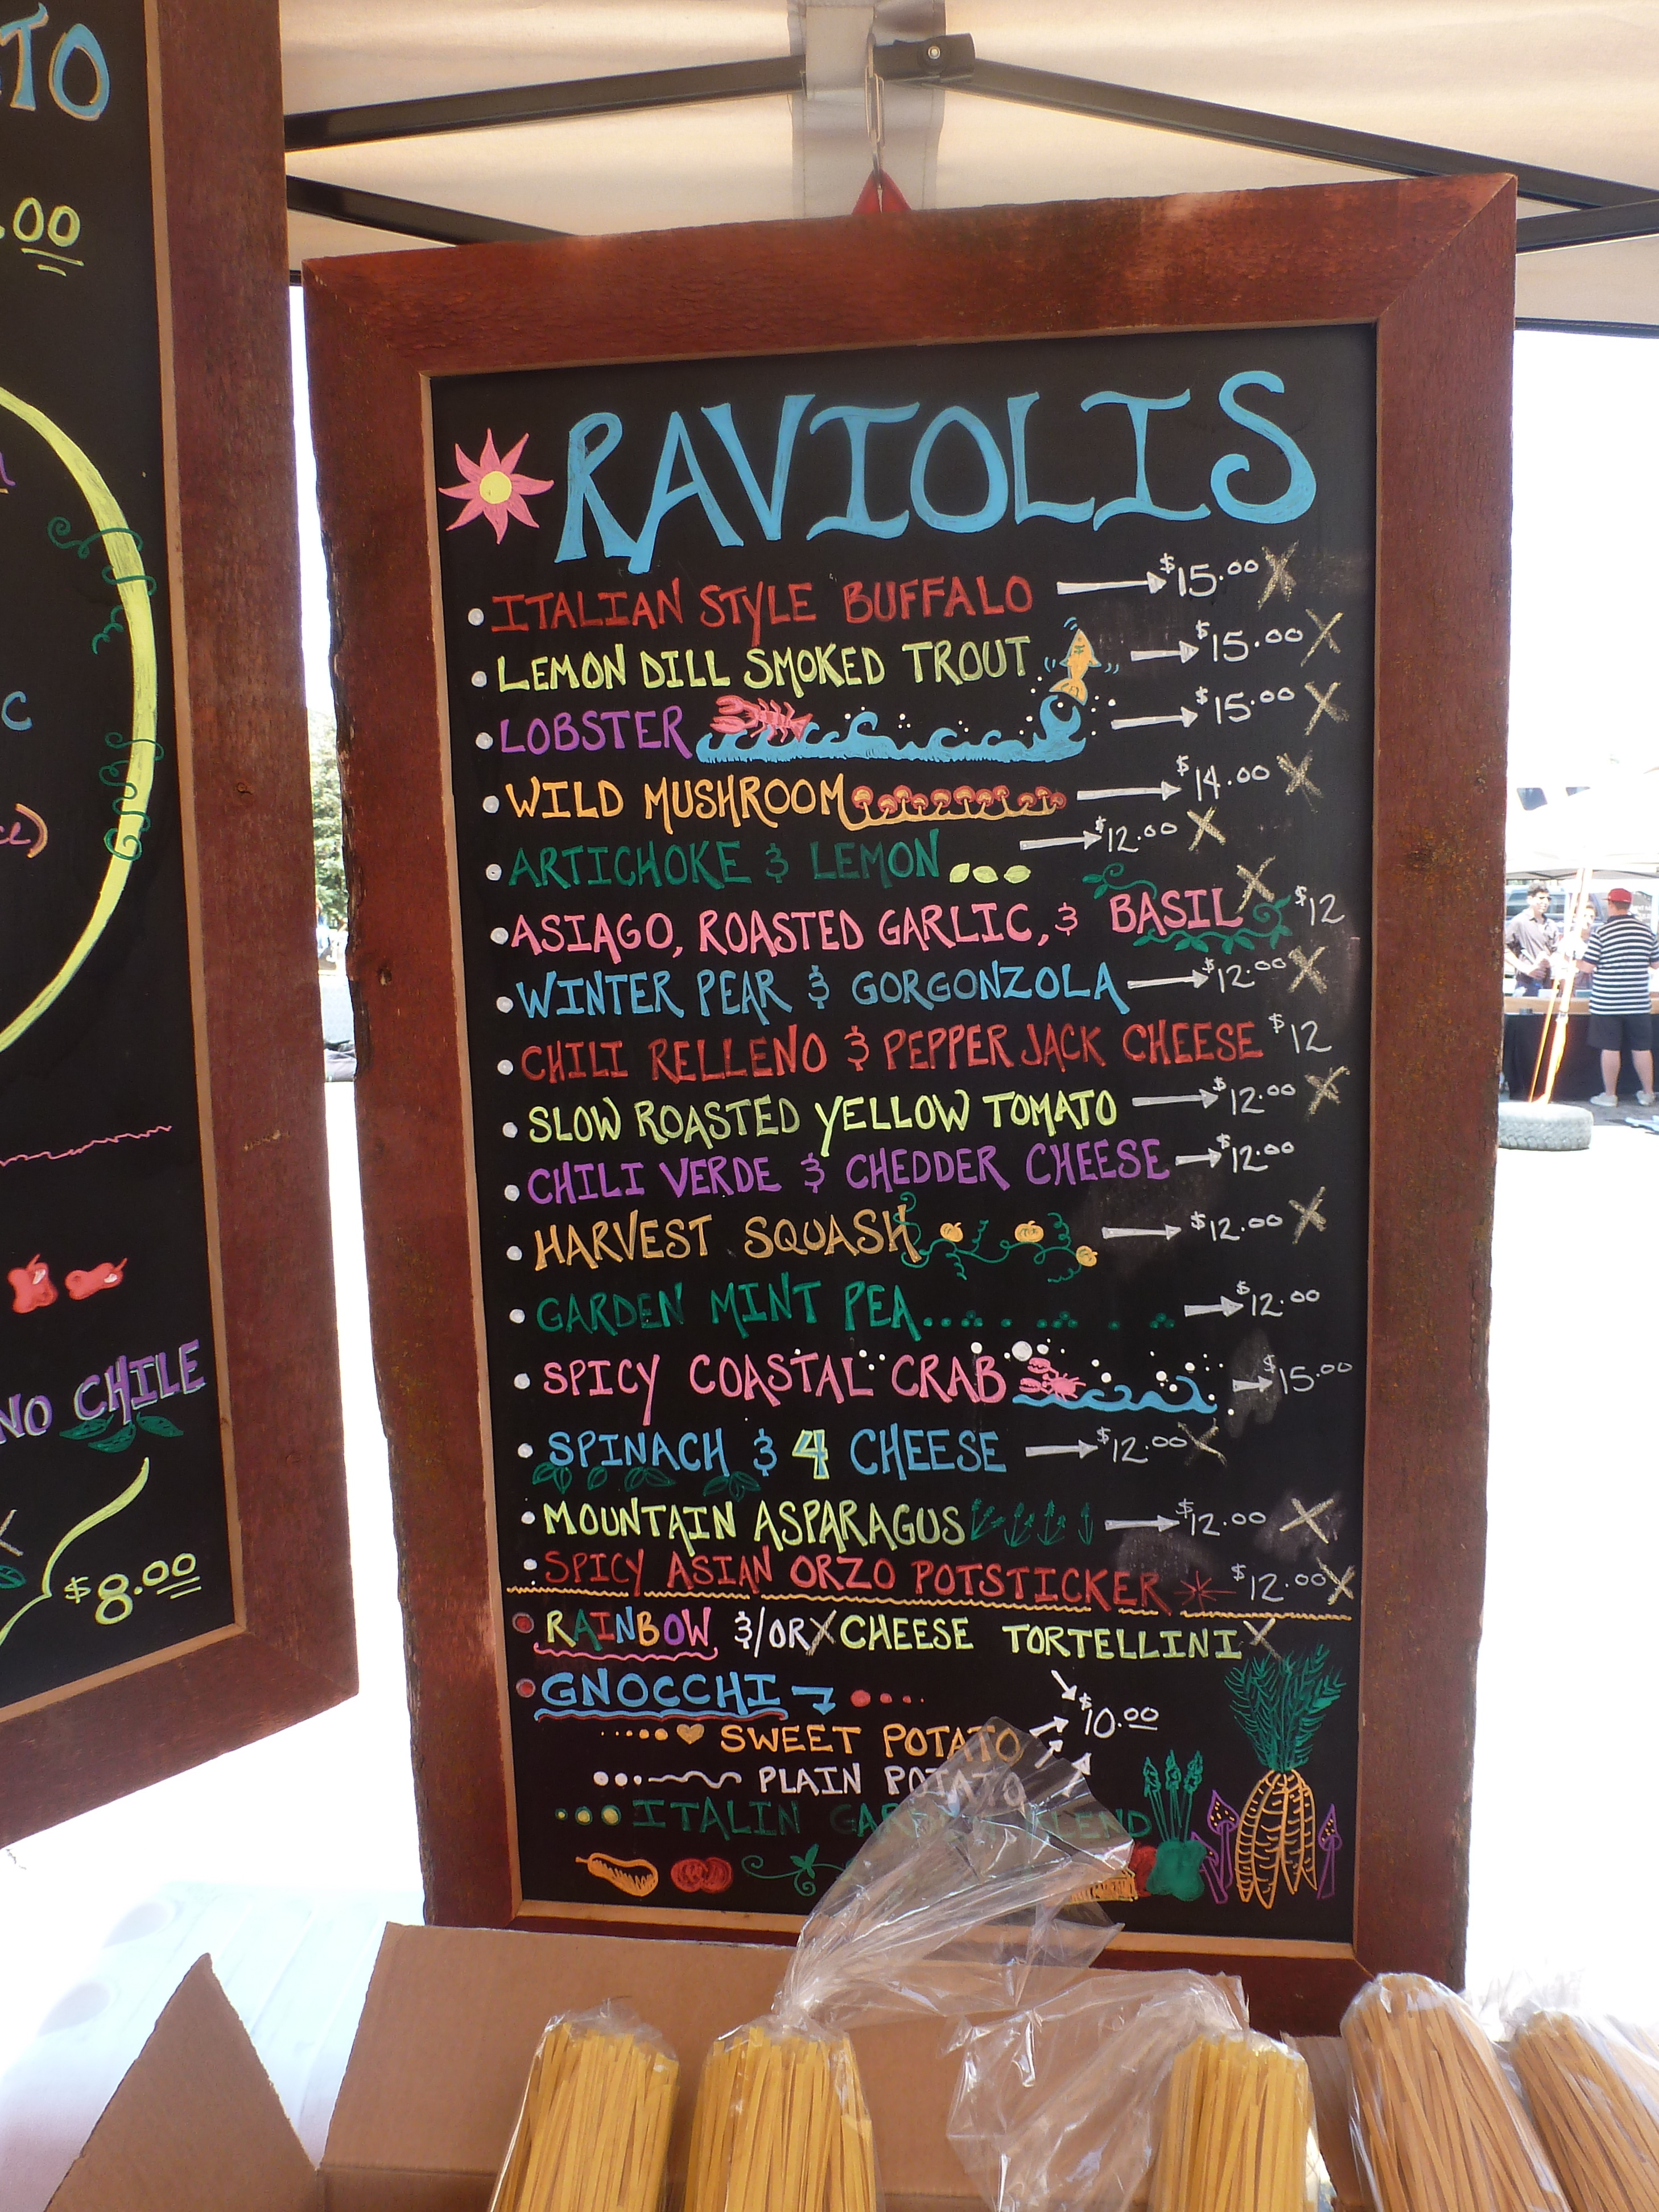 TO
.00
C
NO CHILE
$8.00
RAVIOLIS
• ITALIAN STYLE BUFFALO → $15.00 X
• LEMON DILL SMOKED TROUT → $15.00 X
• LOBSTER → $15.00 X
• WILD MUSHROOM → $14.00 X
• ARTICHOKE & LEMON → $12.00 X
• ASIAGO, ROASTED GARLIC, & BASIL X $12
• WINTER PEAR & GORGONZOLA → $12.00 X
• CHILI RELLENO & PEPPER JACK CHEESE $12
• SLOW ROASTED YELLOW TOMATO → $12.00 X
• CHILI VERDE & CHEDDER CHEESE → $12.00
• HARVEST SQUASH → $12.00 X
• GARDEN MINT PEA → $12.00
• SPICY COASTAL CRAB → $15.00
• SPINACH & 4 CHEESE → $12.00 X
• MOUNTAIN ASPARAGUS → $12.00 X
• SPICY ASIAN ORZO POTSTICKER $12.00 X
• RAINBOW &/OR X CHEESE TORTELLINI X
• GNOCCHI
$10.00
SWEET POTATO
PLAIN POTATO
ITALIN BLEND